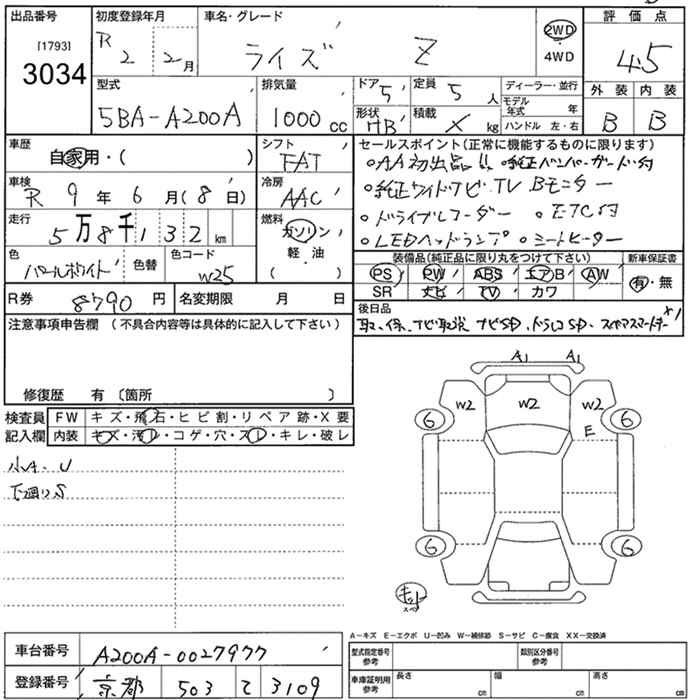 出品番号 初度登録年月 車名・グレード 評価点
[1793]
3034
R 2 2月 ライズ Z 2WD・4WD 4.5
型式 排気量 ドア 定員 ディーラー・並行 外装 内装
5BA-A200A 1000cc 5 5人 モデル年式 年 B B
形状 積載 ハンドル 左・右
HB × kg
車歴 シフト セールスポイント(正常に機能するものに限ります)
自家用・( ) FAT ・AA初出品!! ・純正バンパーガード付
車検 冷房 ・純正ワイドナビ・TV Bモニター
R 9年 6月(8日) AAC
走行 燃料 ・ドライブレコーダー ・ETC付
5万8千132km ガソリン ・LEDヘッドランプ ・シートヒーター
軽・油
( )
色 色替 色コード 装備品(純正品に限り丸をつけて下さい) 新車保証書
パールホワイト W25 PS PW ABS エアB AW 有・無
SR ナビ TV カワ
R券 8790円 名変期限 月 日 後日品
取、保、ナビ取説 ナビSD、ドラレコSD、スペアスマートキー×1
注意事項申告欄(不具合内容等は具体的に記入して下さい)
修復歴 有〔箇所 〕
検査員 FW キズ・飛石・ヒビ割・リペア跡・X要
記入欄 内装 キズ・汚レ・コゲ・穴・スレ・キレ・破レ
小A、U
下廻りS
A1 A1
W2 W2 W2
E
6 6
6 6
キット
スペ
A-キズ E-エクボ U-凹み W-補修跡 S-サビ C-腐食 XX-交換済
車台番号 A200A-0027977 型式指定番号 参考 類別区分番号 参考
登録番号 京都 503 て 3109 車庫証明用 参考 長さ cm 幅 cm 高さ cm